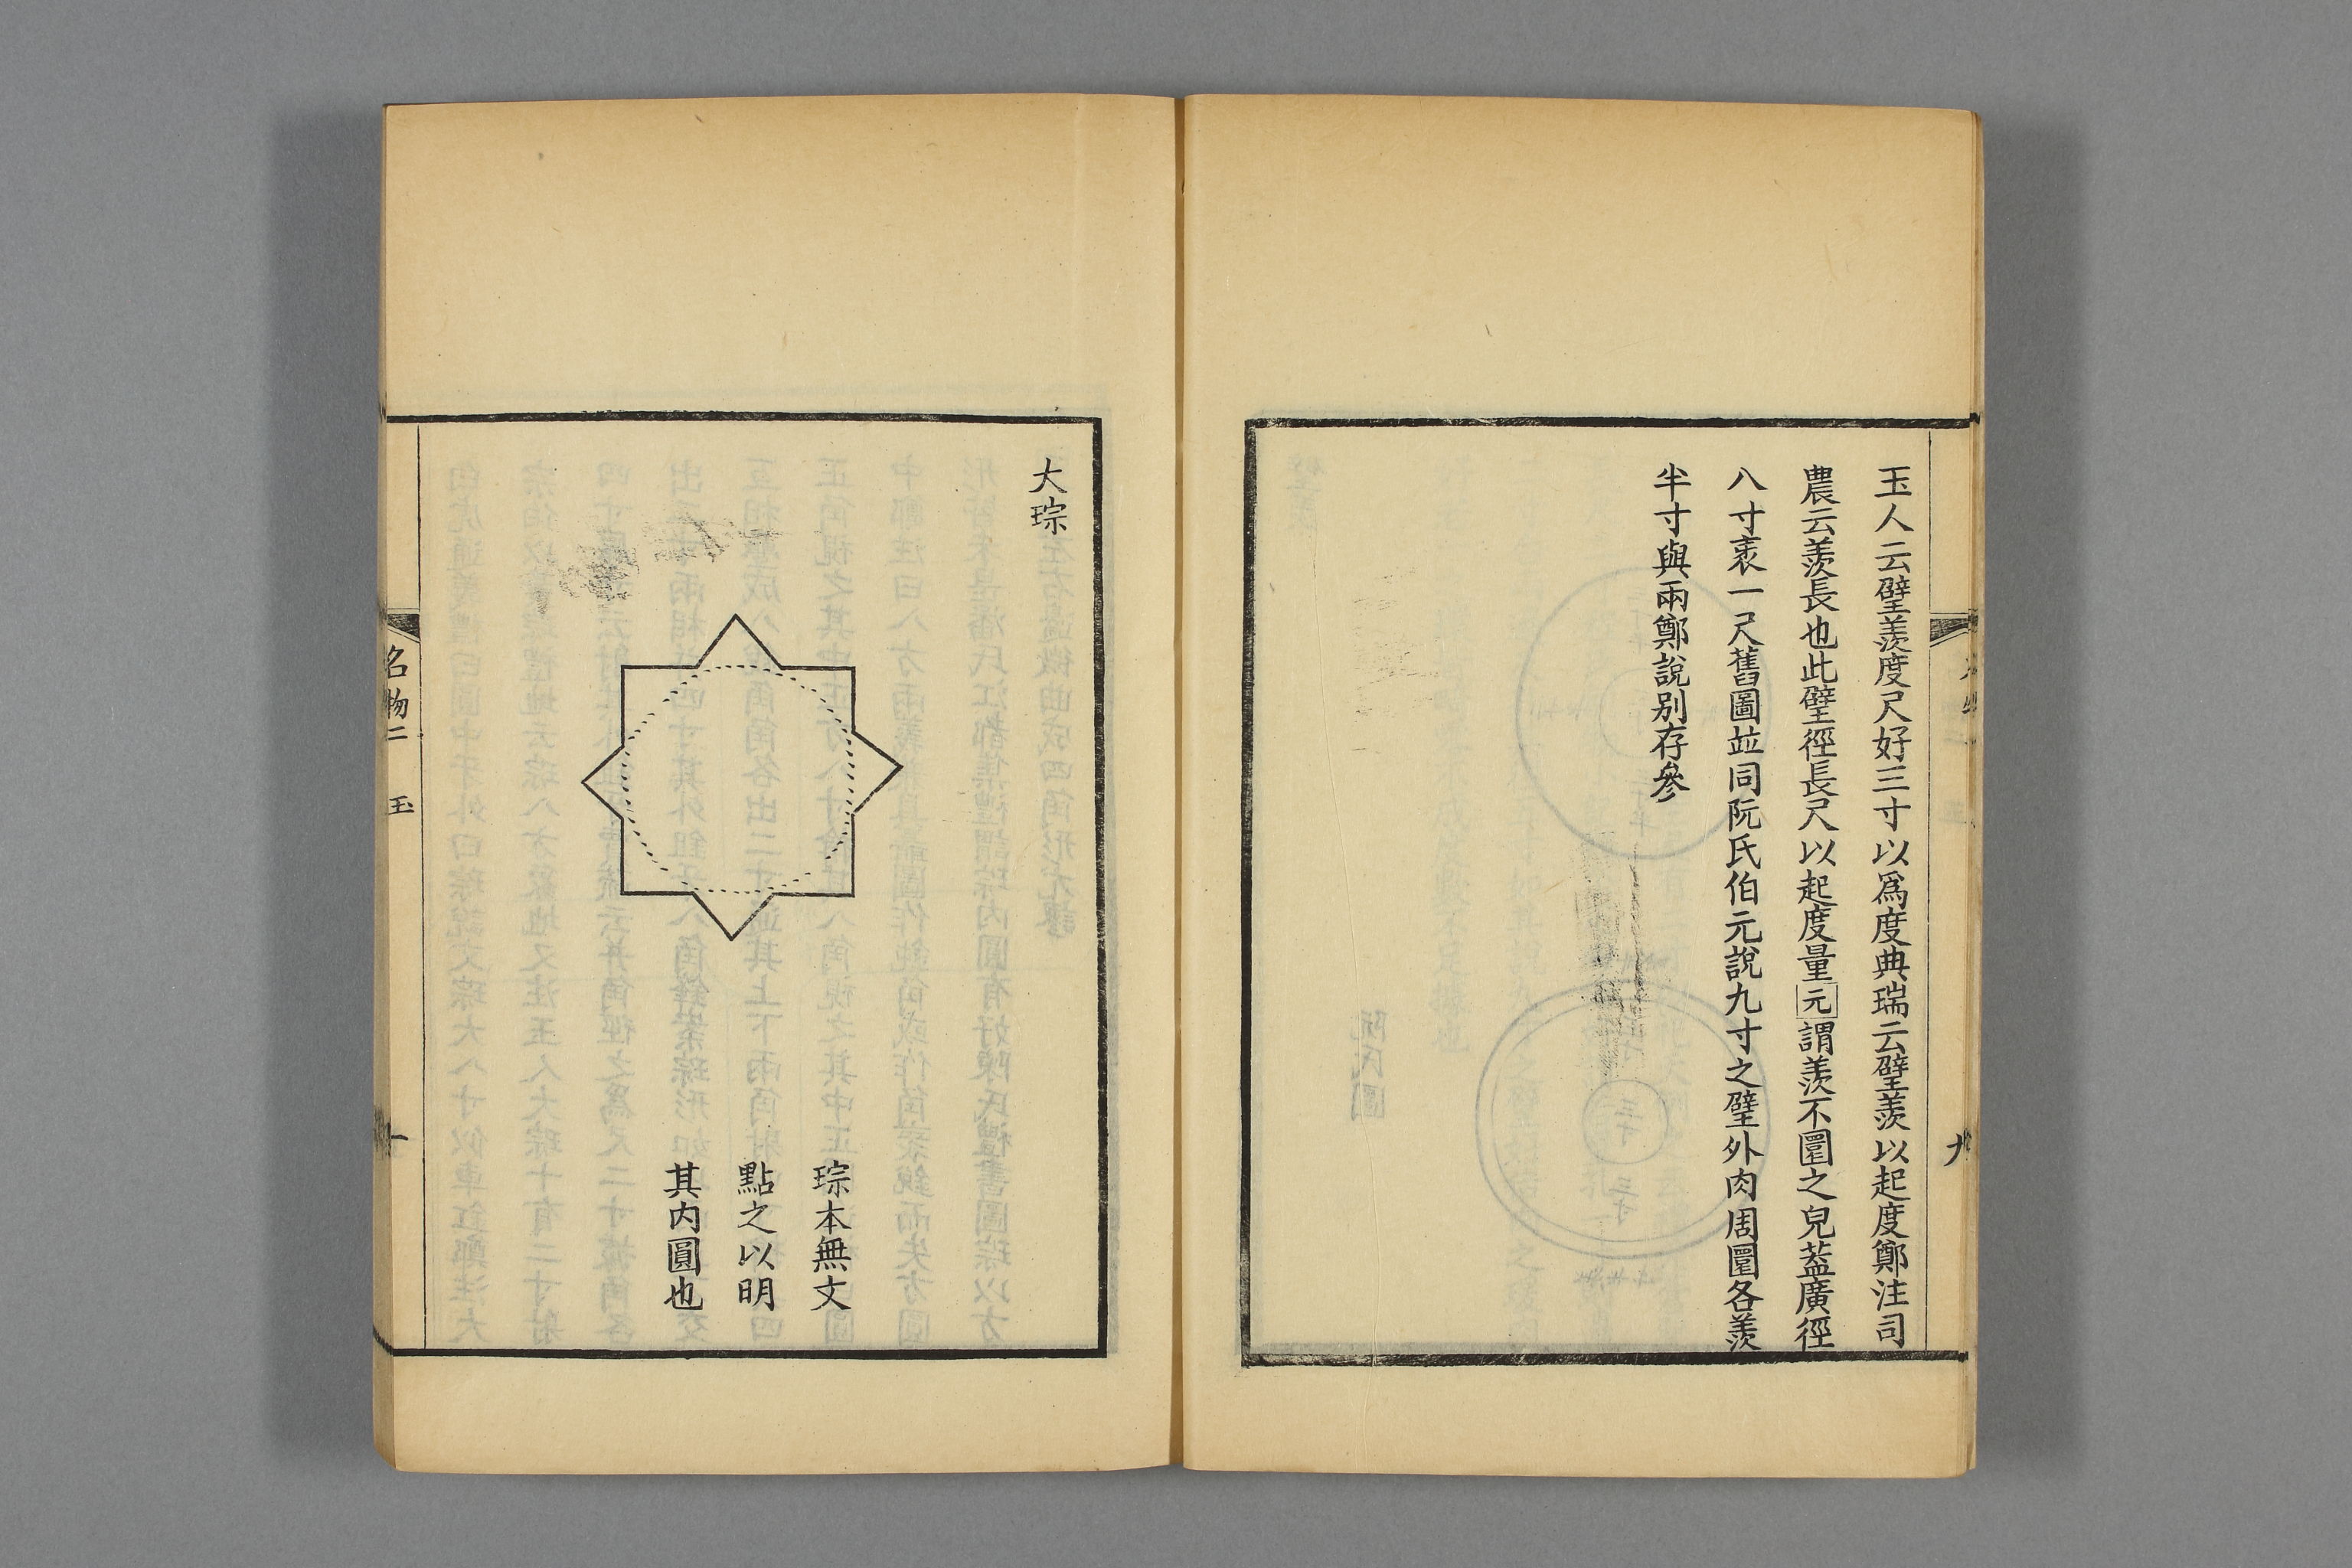 玉人云璧羨度尺好三寸以爲度典瑞云璧羨以起度鄭注司
農云羨長也此璧徑長尺以起度量元謂羨不圜之皃葢廣徑
八寸袤一尺舊圖並同阮氏伯元說九寸之璧外肉周圜各羨
半寸與兩鄭說别存參
九
大琮
琮本無文
點之以明
其内圓也
名物二 玉